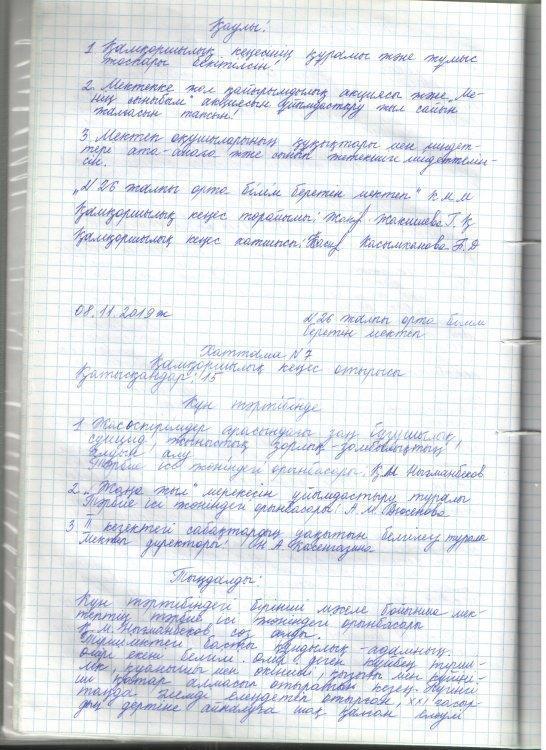 Қаулы:
1. Қамқоршылық кеңесінің құрамы және жұмыс
жоспары бекітілсін!
2. Мектепке жол қайырымдылық акциясы және "Ме-
нің сыныбым" акциясын ұйымдастыру жыл сайын
жалғасын тапсын!
3. Мектеп оқушыларының құқықтары мен міндет-
тері ата-анаға және сынып жетекшіге міндеттелін-
сін.
"N 26 жалпы орта білім беретін мектеп" К.М.М
Қамқоршылық кеңес төрайымы: Жакишева Г. Қ
Қамқоршылық кеңес хатшысы: Касымканова Б. Д
08.11.2019ж
N 26 жалпы орта білім
беретін мектеп
Хаттама N 7
Қамқоршылық кеңес отырысы
Қатысқандар: 15
Күн тәртібінде
1. Жасөспірімдер арасындағы заң бұзушылық,
суицид, жыныстық зорлық-зомбылықтың
алдын алу
Тәрбие ісі жөніндегі орынбасары. Қ.М Нығманбеков
2. "Жаңа жыл" мерекесін ұйымдастыру туралы
Тәрбие ісі жөніндегі орынбасары: А.М.
3. II кезектегі сабақтардың уақытын белгілеу туралы
Мектеп директоры: Н.А Касенгазина
Тыңдалды:
Күн тәртібіндегі бірінші мәселе бойынша мек-
тептің тәрбие ісі жөніндегі орынбасары
Қ.М.Нығманбеков сөз алды.
Тіршіліктегі басты құндылық - адамның
өмірі екені белгілі. Өмір деген күйбең тірші-
лік, қуанышы мен өкініші, қызығы мен күйі-
ші қатар алмасып отыратын кезең. Бүгінгі
таңда әлемді елеңдетіп отырған, XXI ғасыр-
дың дертіне айналуға шақ қалған